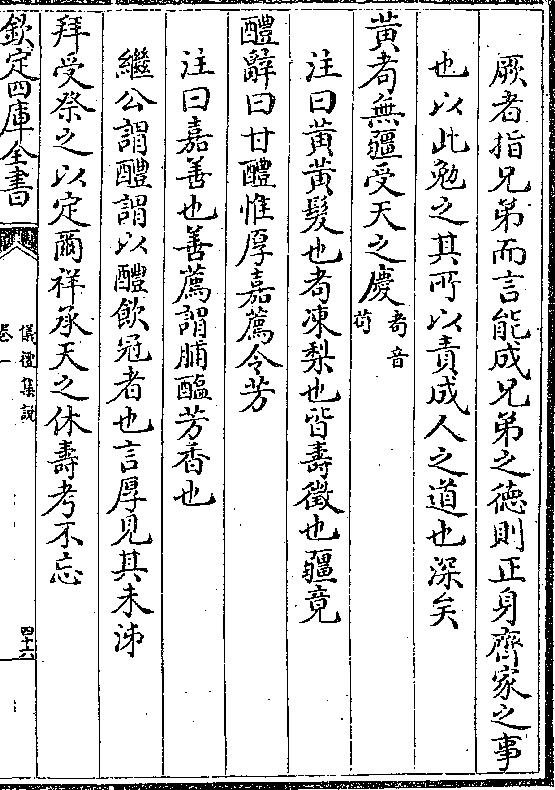 厥者指兄弟而言能成兄弟之德則正身齊家之事
也以此勉之其所以責成人之道也深矣
黃耉無疆受天之慶耉音苟
注曰黃黃髮也耉凍梨也皆壽徵也疆竟
醴辭曰甘醴惟厚嘉薦令芳
注曰嘉善也善薦謂脯醢芳香也
繼公謂醴謂以醴飲冠者也言厚見其未泲
拜受祭之以定爾祥承天之休壽考不忘
欽定四庫全書
儀禮集說
卷一
四十六